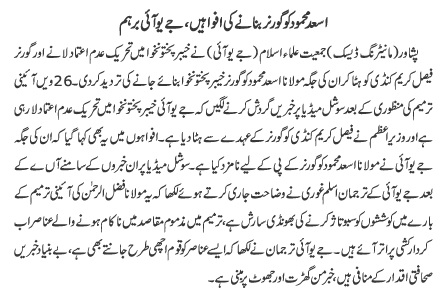 اسعد محمود کو گورنر بنانے کی افواہیں، جے یو آئی برہم
پشاور (مانیٹرنگ ڈیسک) جمعیت علماء اسلام (جے یو آئی) نے خیبر پختونخوا میں تحریک عدم اعتماد لانے اور گورنر
فیصل کریم کنڈی کو ہٹا کر ان کی جگہ مولانا اسعد محمود کو گورنر خیبر پختونخوا بنائے جانے کی تردید کردی۔ 26 ویں آئینی
ترمیم کی منظوری کے بعد سوشل میڈیا پر خبریں گردش کرنے لگیں کہ جے یو آئی خیبر پختونخوا میں تحریک عدم اعتماد لا رہی
ہے اور وزیراعظم نے فیصل کریم کنڈی کو گورنر کے عہدے سے ہٹا دیا ہے۔ افواہوں میں یہ بھی کہا گیا کہ ان کی جگہ
جے یو آئی نے مولانا اسعد محمود کو گورنر کے پی کے لیے نامزد کیا ہے۔ سوشل میڈیا پر ان خبروں کے سامنے آں ے کے
بعد جے یو آئی کے ترجمان اسلم غوری نے وضاحت جاری کرتے ہوئے لکھا کہ یہ مولانا فضل الرحمٰن کی آئینی ترمیم کے
بارے میں کوششوں کو سبوتاژ کرنے کی بھونڈی سازش ہے، ترمیم میں مذموم مقاصد میں ناکام ہونے والے عناصر اب
کردار کشی پر اتر آئے ہیں۔ جے یو آئی ترجمان نے لکھا کہ ایسے عناصر کو قوم اچھی طرح جانتے بھی ہے، بے بنیاد خبریں
صحافتی اقدار کے منافی ہیں، خبر من گھڑت اور جھوٹ پر مبنی ہے۔